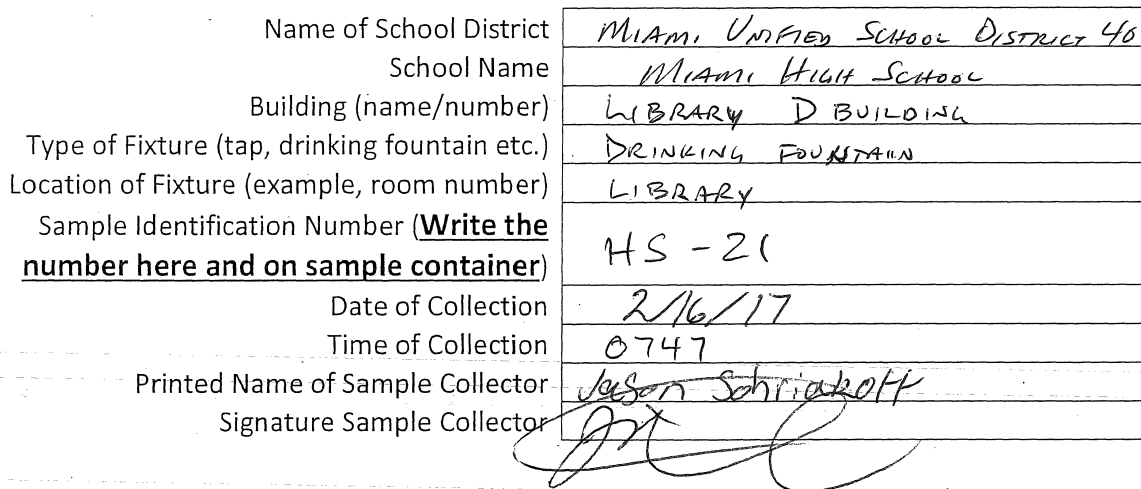 Name of School District MIAMI UNIFIED SCHOOL DISTRICT 40
School Name MIAMI HIGH SCHOOL
Building (name/number) LIBRARY D BUILDING
Type of Fixture (tap, drinking fountain etc.) DRINKING FOUNTAIN
Location of Fixture (example, room number) LIBRARY
Sample Identification Number (Write the
number here and on sample container) HS-21
Date of Collection 2/16/17
Time of Collection 0747
Printed Name of Sample Collector Jason
Signature Sample Collector